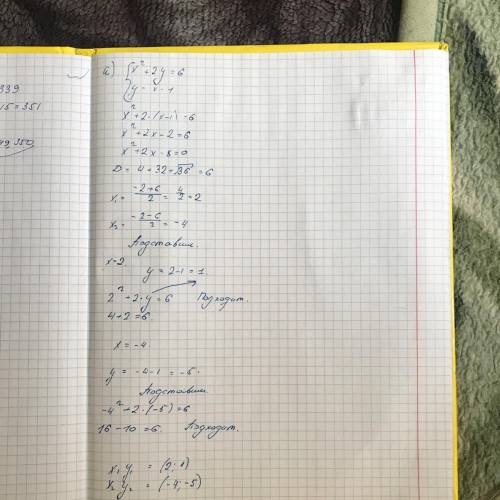 339
15 = 351
49 350
a) { x² + 2y = 6
{ y = x - 1
x² + 2·(x-1) = 6
x² + 2x - 2 = 6
x² + 2x - 8 = 0
D = 4 + 32 = √36 = 6
x₁ = (-2+6)/2 = 4/2 = 2
x₂ = (-2-6)/2 = -4
Подставим.
x = 2
y = 2-1 = 1.
2² + 2·y = 6 Подходит.
4 + 2 = 6.
x = -4.
y = -4-1 = -5.
Подставим
-4² + 2·(-5) = 6
16 - 10 = 6. Подходит.
x₁ y₁ = (2; 1)
x₂ y₂ = (-4; -5)